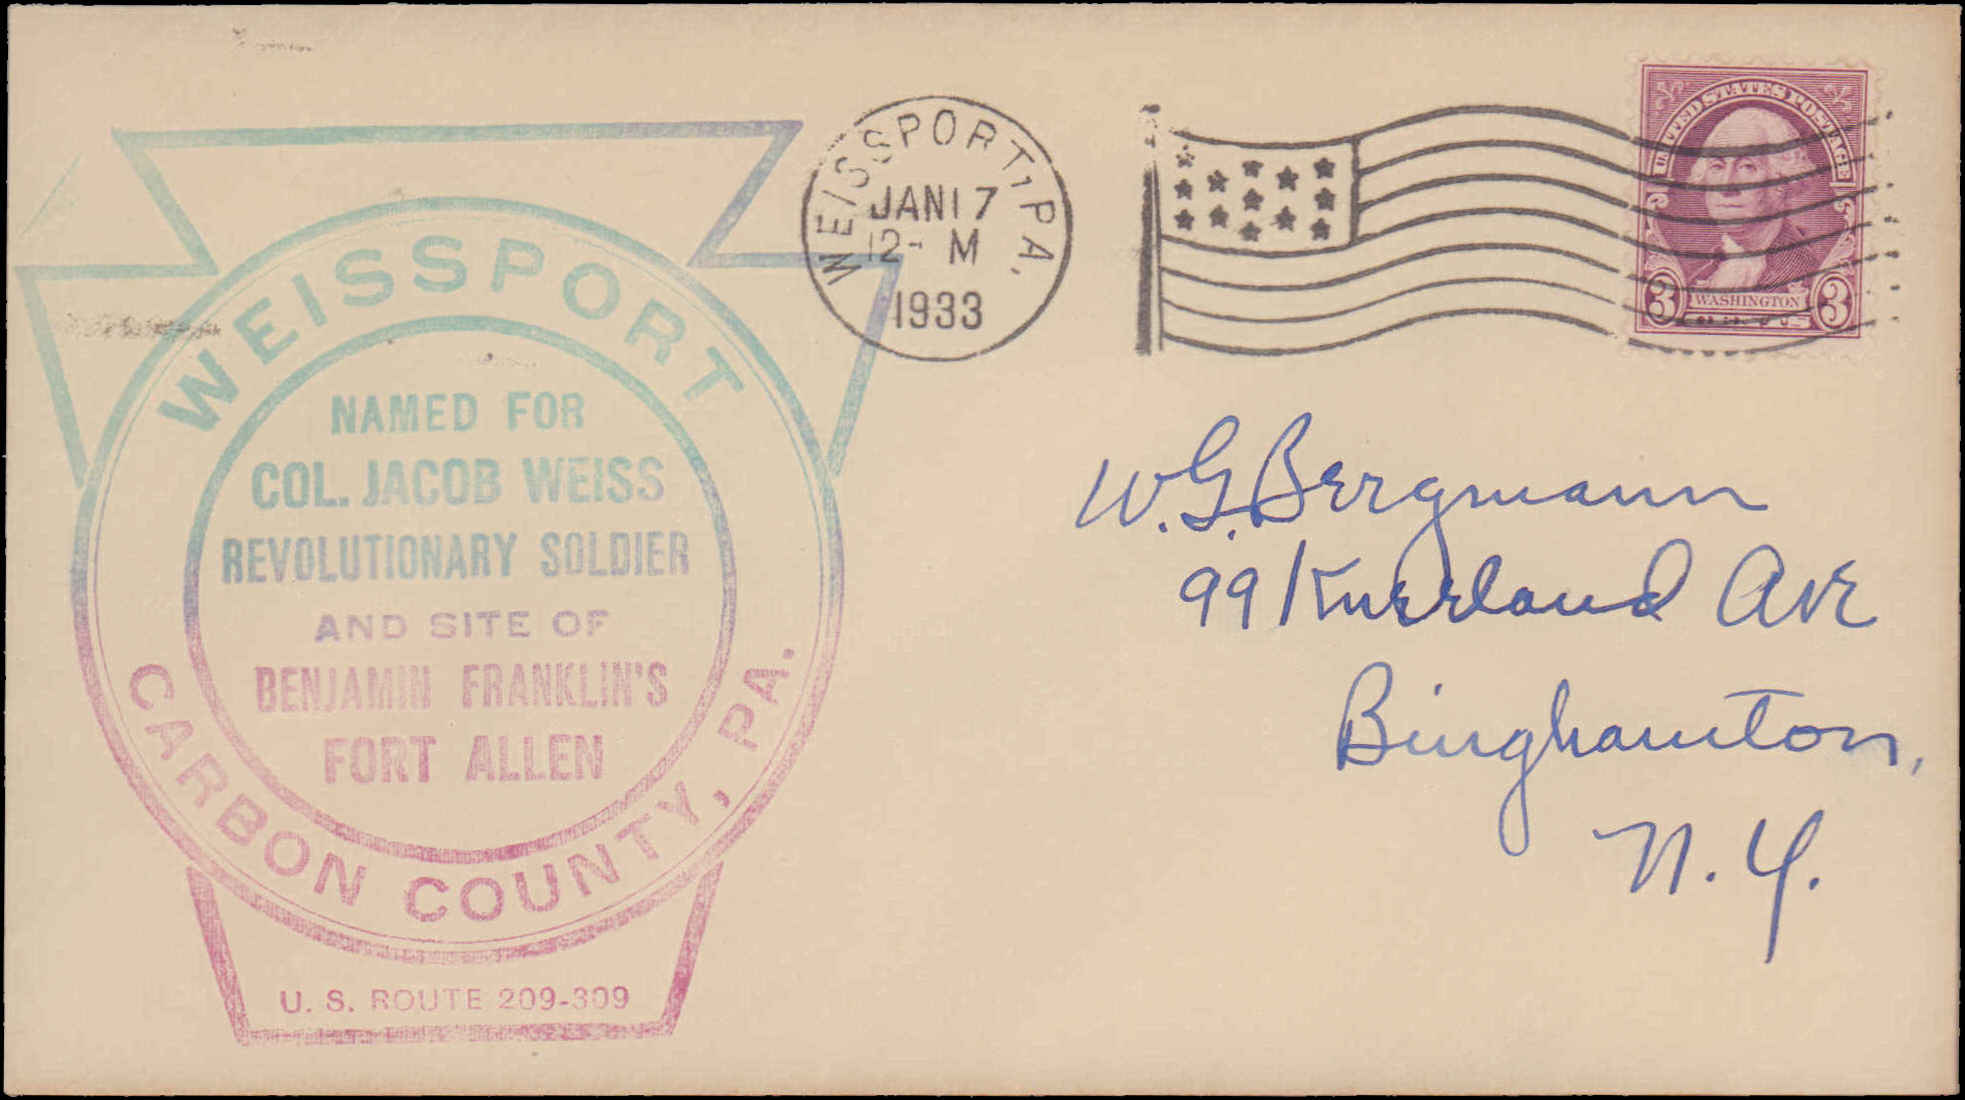 WEISSPORT
NAMED FOR
COL. JACOB WEISS
REVOLUTIONARY SOLDIER
AND SITE OF
BENJAMIN FRANKLIN'S
FORT ALLEN
CARBON COUNTY, PA.
U. S. ROUTE 209-309
WEISSPORT, PA.
JAN 17
12- M
1933
UNITED STATES POSTAGE
WASHINGTON
3 3
W. G. Bergmann
99 Ave
Binghamton,
N. Y.